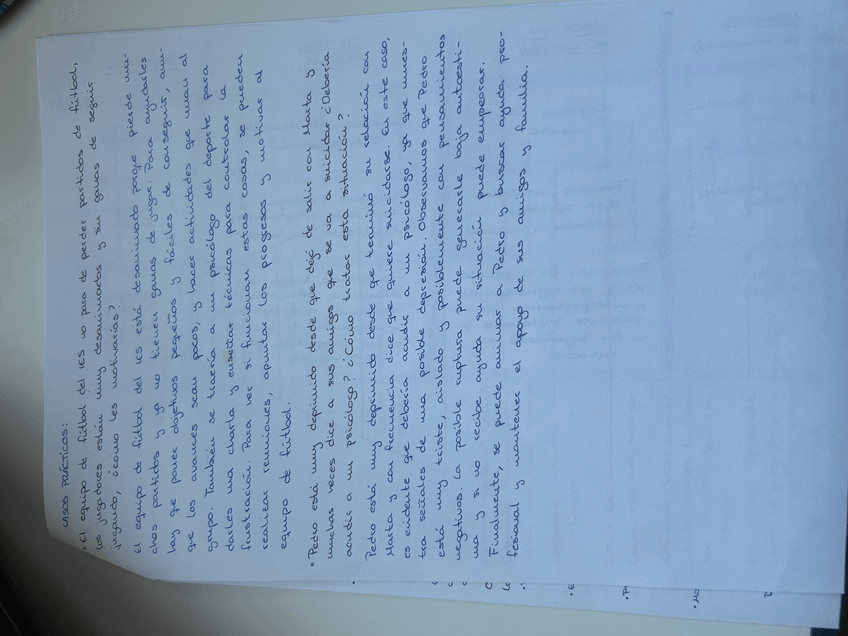 CASOS PRÁCTICOS:
• El equipo de fútbol del IES no para de perder partidos de fútbol,
los jugadores están muy desanimados y sin ganas de seguir
jugando, ¿cómo les motivarías?
El equipo de fútbol del IES está desanimado porque pierde mu-
chos partidos y ya no tienen ganas de jugar. Para ayudarles
hay que poner objetivos pequeños y fáciles de conseguir, aun-
que los avances sean pocos, y hacer actividades que unan al
grupo. También se traería a un psicólogo del deporte para
darles una charla y enseñar técnicas para controlar la
frustración. Para ver si funcionan estas cosas, se pueden
realizar reuniones, apuntar los progresos y motivar al
equipo de fútbol.
• Pedro está muy deprimido desde que dejó de salir con Marta y
muchas veces dice a sus amigos que se va a suicidar ¿Debería
acudir a un psicólogo? ¿Cómo tratar esta situación?
Pedro está muy deprimido desde que terminó su relación con
Marta y con frecuencia dice que quiere suicidarse. En este caso,
es evidente que debería acudir a un psicólogo, ya que mues-
tra señales de una posible depresión. Observamos que Pedro
está muy triste, aislado y posiblemente con pensamientos
negativos. La posible ruptura puede generarle baja autoesti-
ma y si no recibe ayuda su situación puede empeorar.
Finalmente, se puede animar a Pedro y buscar ayuda pro-
fesional y mantener el apoyo de sus amigos y familia.